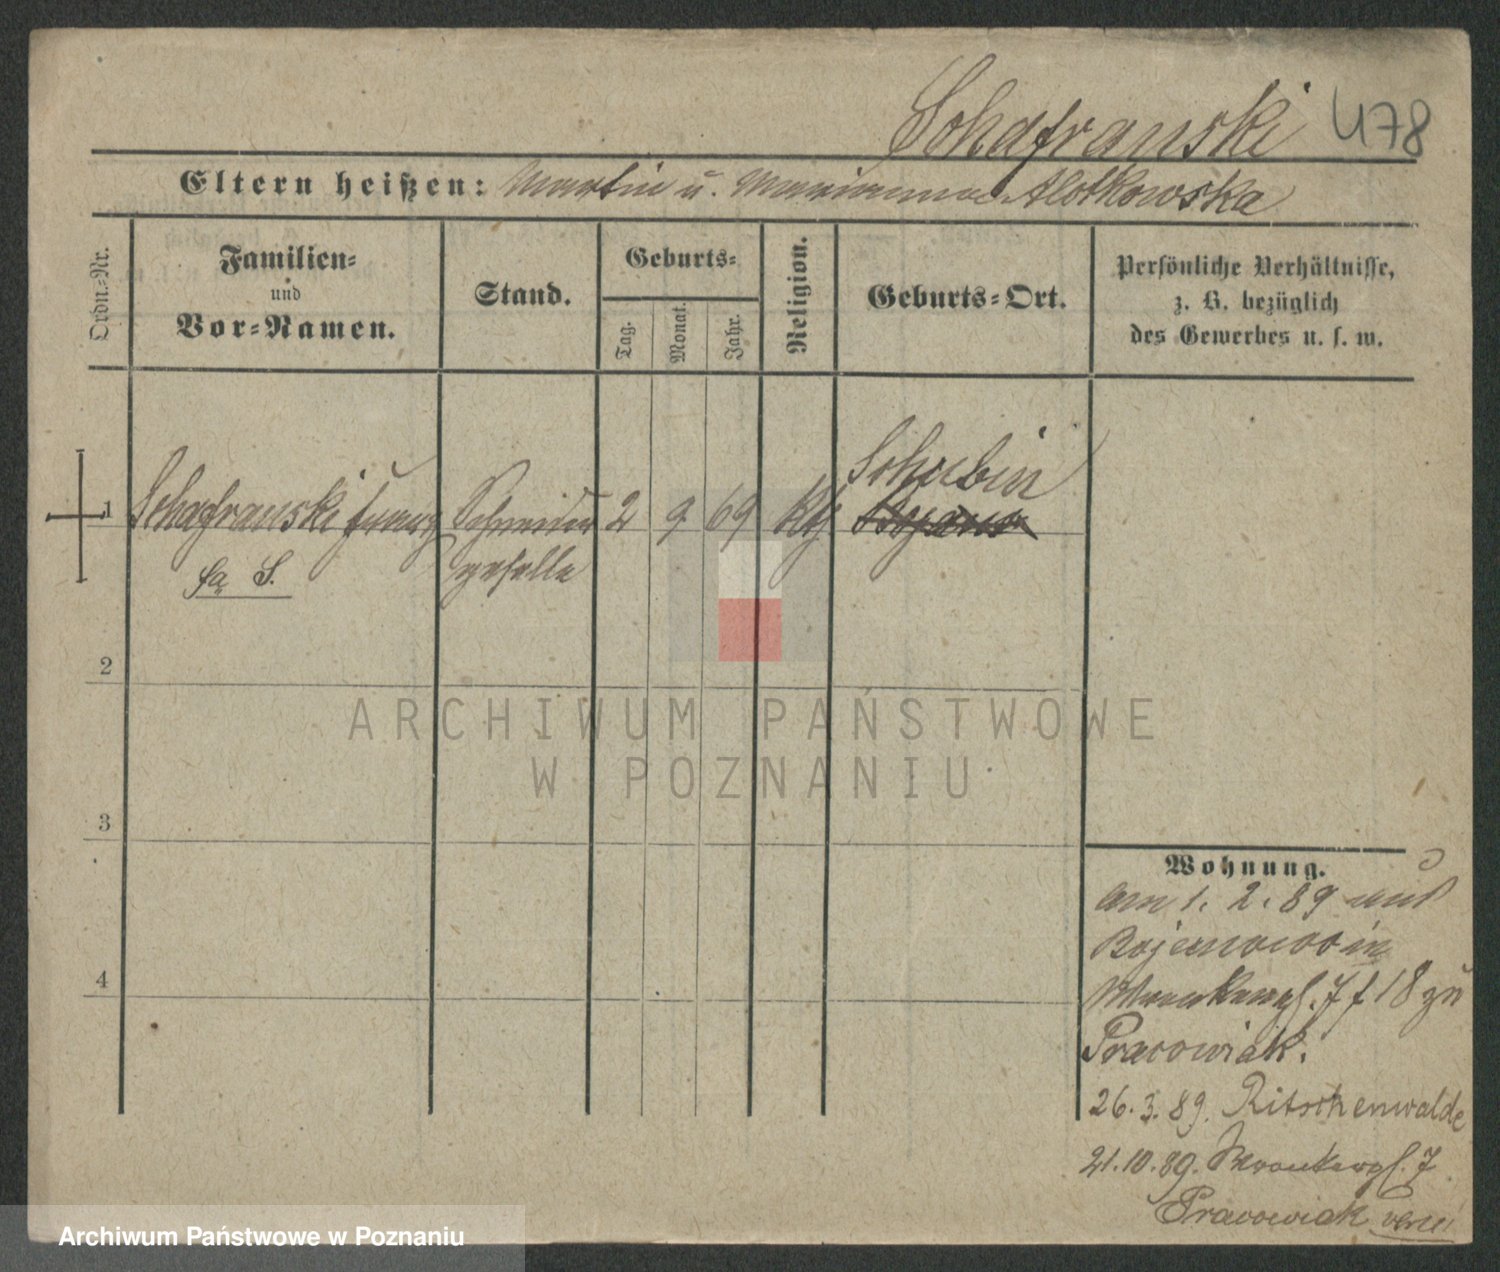 Schafranski 478
Eltern heißen: Martin u. Marianna Alotkowska
Ordn.-Nr.
Familien-
und
Vor-Namen.
Stand.
Geburts-
Tag.
Monat.
Jahr.
Religion.
Geburts-Ort.
Persönliche Verhältnisse,
z. B. bezüglich
des Gewerbes u. s. w.
Schubin
1 Schafranski Franz Schneider 2 9 69 kth Bojano
fa S. geselle
2
ARCHIWUM PAŃSTWOWE
W POZNANIU
3
Wohnung.
am 1. 2. 89 aus
Bojanowo in
Wronkergs. 7 f 18 zu
Pracowiak.
4
26. 3. 89. Ritschenwalde
21. 10. 89. Wronkergs. 7
Pracowiak
Archiwum Państwowe w Poznaniu